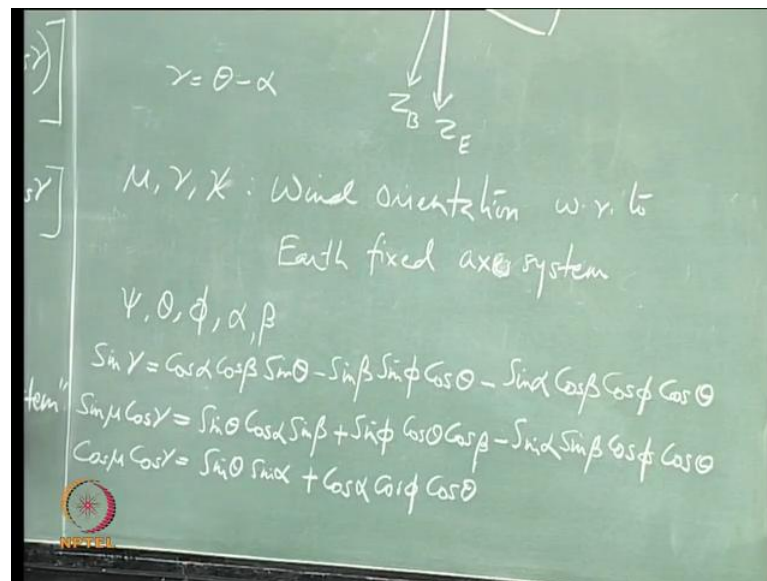 γ = θ - α
Z_B Z_E
μ, γ, χ : Wind orientation w.r. to
Earth fixed axes system
Ψ, θ, φ, α, β
Sin γ = Cosα Cosβ Sinθ - Sinβ Sinφ Cosθ - Sinα Cosβ Cosφ Cosθ
Sinμ Cosγ = Sinθ Cosα Sinβ + Sinφ Cosθ Cosβ - Sinα Sinβ Cosφ Cosθ
Cosμ Cosγ = Sinθ Sinα + Cosα Cosφ Cosθ
NPTEL